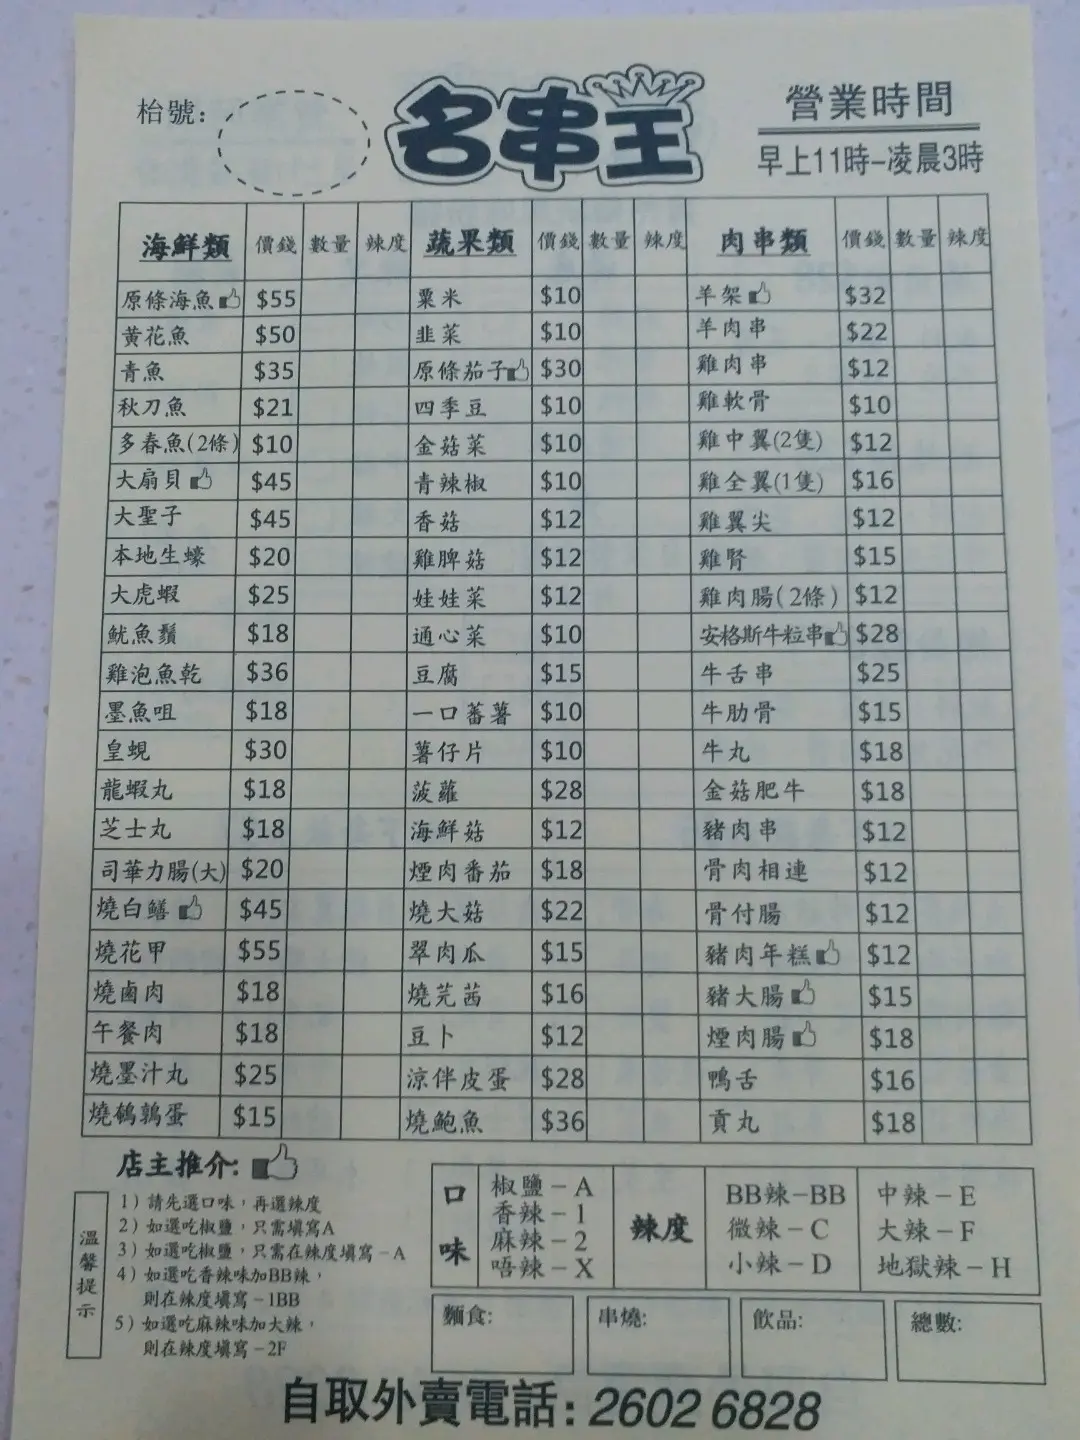 枱號:
名串王
營業時間
早上11時-凌晨3時
海鮮類 價錢 數量 辣度 蔬果類 價錢 數量 辣度 肉串類 價錢 數量 辣度
原條海魚 $55 粟米 $10 羊架 $32
黄花魚 $50 韭菜 $10 羊肉串 $22
青魚 $35 原條茄子 $30 雞肉串 $12
秋刀魚 $21 四季豆 $10 雞軟骨 $10
多春魚(2條) $10 金菇菜 $10 雞中翼(2隻) $12
大扇貝 $45 青辣椒 $10 雞全翼(1隻) $16
大聖子 $45 香菇 $12 雞翼尖 $12
本地生蠔 $20 雞脾菇 $12 雞腎 $15
大虎蝦 $25 娃娃菜 $12 雞肉腸(2條) $12
魷魚鬚 $18 通心菜 $10 安格斯牛粒串 $28
雞泡魚乾 $36 豆腐 $15 牛舌串 $25
墨魚咀 $18 一口蕃薯 $10 牛肋骨 $15
皇蜆 $30 薯仔片 $10 牛丸 $18
龍蝦丸 $18 菠蘿 $28 金菇肥牛 $18
芝士丸 $18 海鮮菇 $12 豬肉串 $12
司華力腸(大) $20 煙肉番茄 $18 骨肉相連 $12
燒白鱔 $45 燒大菇 $22 骨付腸 $12
燒花甲 $55 翠肉瓜 $15 豬肉年糕 $12
燒鹵肉 $18 燒芫茜 $16 豬大腸 $15
午餐肉 $18 豆卜 $12 煙肉腸 $18
燒墨汁丸 $25 涼伴皮蛋 $28 鴨舌 $16
燒鵪鶉蛋 $15 燒鮑魚 $36 貢丸 $18
店主推介:
溫馨提示
1) 請先選口味，再選辣度
2) 如選吃椒鹽，只需填寫A
3) 如選吃椒鹽，只需在辣度填寫-A
4) 如選吃香辣味加BB辣，
則在辣度填寫-1BB
5) 如選吃麻辣味加大辣，
則在辣度填寫-2F
口味
椒鹽-A
香辣-1
麻辣-2
唔辣-X
辣度
BB辣-BB 中辣-E
微辣-C 大辣-F
小辣-D 地獄辣-H
麵食: 串燒: 飲品: 總數:
自取外賣電話: 2602 6828